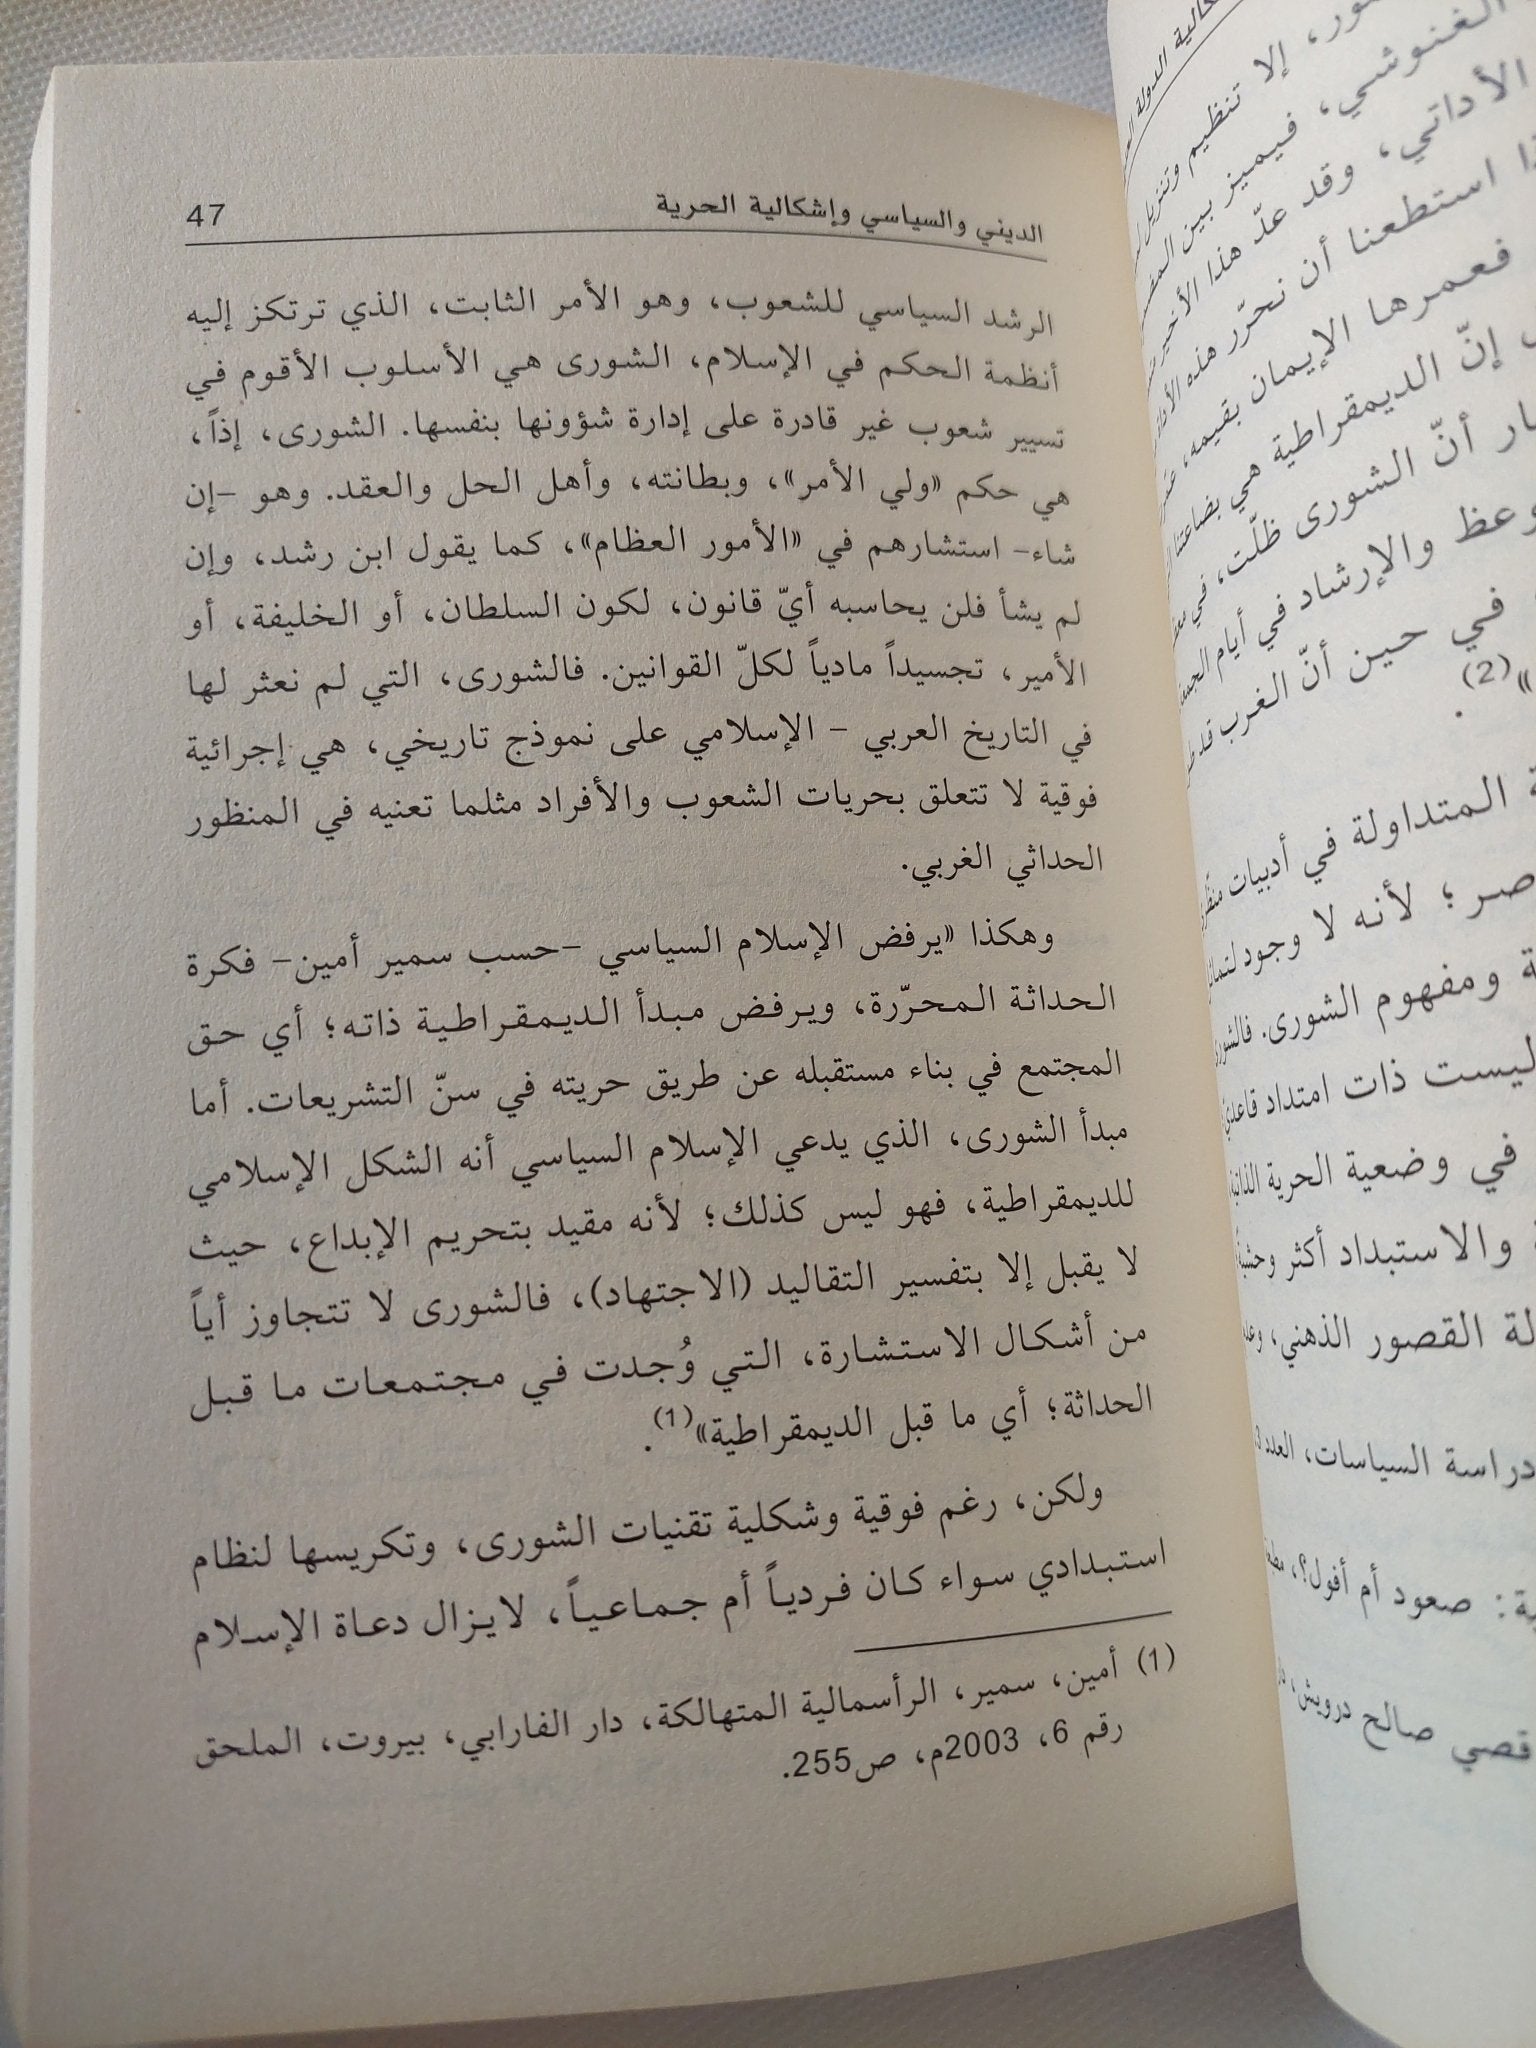 الديني والسياسي وإشكالية الحرية 47
الرشد السياسي للشعوب، وهو الأمر الثابت، الذي ترتكز إليه
أنظمة الحكم في الإسلام، الشورى هي الأسلوب الأقوم في
تسيير شعوب غير قادرة على إدارة شؤونها بنفسها. الشورى، إذاً،
هي حكم «ولي الأمر»، وبطانته، وأهل الحل والعقد. وهو –إن
شاء– استشارهم في «الأمور العظام»، كما يقول ابن رشد، وإن
لم يشأ فلن يحاسبه أيّ قانون، لكون السلطان، أو الخليفة، أو
الأمير، تجسيداً مادياً لكلّ القوانين. فالشورى، التي لم نعثر لها
في التاريخ العربي – الإسلامي على نموذج تاريخي، هي إجرائية
فوقية لا تتعلق بحريات الشعوب والأفراد مثلما تعنيه في المنظور
الحداثي الغربي.
وهكذا «يرفض الإسلام السياسي –حسب سمير أمين– فكرة
الحداثة المحرّرة، ويرفض مبدأ الديمقراطية ذاته؛ أي حق
المجتمع في بناء مستقبله عن طريق حريته في سنّ التشريعات. أما
مبدأ الشورى، الذي يدعي الإسلام السياسي أنه الشكل الإسلامي
للديمقراطية، فهو ليس كذلك؛ لأنه مقيد بتحريم الإبداع، حيث
لا يقبل إلا بتفسير التقاليد (الاجتهاد)، فالشورى لا تتجاوز أياً
من أشكال الاستشارة، التي وُجدت في مجتمعات ما قبل
الحداثة؛ أي ما قبل الديمقراطية»(1).
ولكن، رغم فوقية وشكلية تقنيات الشورى، وتكريسها لنظام
استبدادي سواء كان فردياً أم جماعياً، لا يزال دعاة الإسلام
(1) أمين، سمير، الرأسمالية المتهالكة، دار الفارابي، بيروت، الملحق
رقم 6، 2003م، ص255.
إلا تنظيم وتنزيل
الغنوشي، فيميز بين
الأداتي، وقد عدّ هذا الأخير
استطعنا أن نحرّر هذه
فعمرها الإيمان بقيمه،
إنّ الديمقراطية هي بضاعتنا
أنّ الشورى ظلّت، في
والإرشاد في أيام
في حين أنّ الغرب قد
»(2).
المتداولة في أدبيات
لأنه لا وجود
ومفهوم الشورى. فالشورى
ليست ذات امتداد
في وضعية الحرية
والاستبداد أكثر
القصور الذهني،
دراسة السياسات، العدد
صعود أم أفول؟،
قصي صالح درويش،